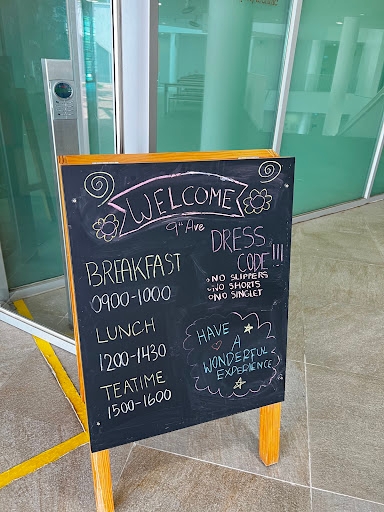 WELCOME
9th Ave
BREAKFAST
0900-1000
LUNCH
1200-1430
TEATIME
1500-1600
DRESS
CODE!!!
NO SLIPPERS
NO SHORTS
NO SINGLET
HAVE
A
WONDERFUL
EXPERIENCE